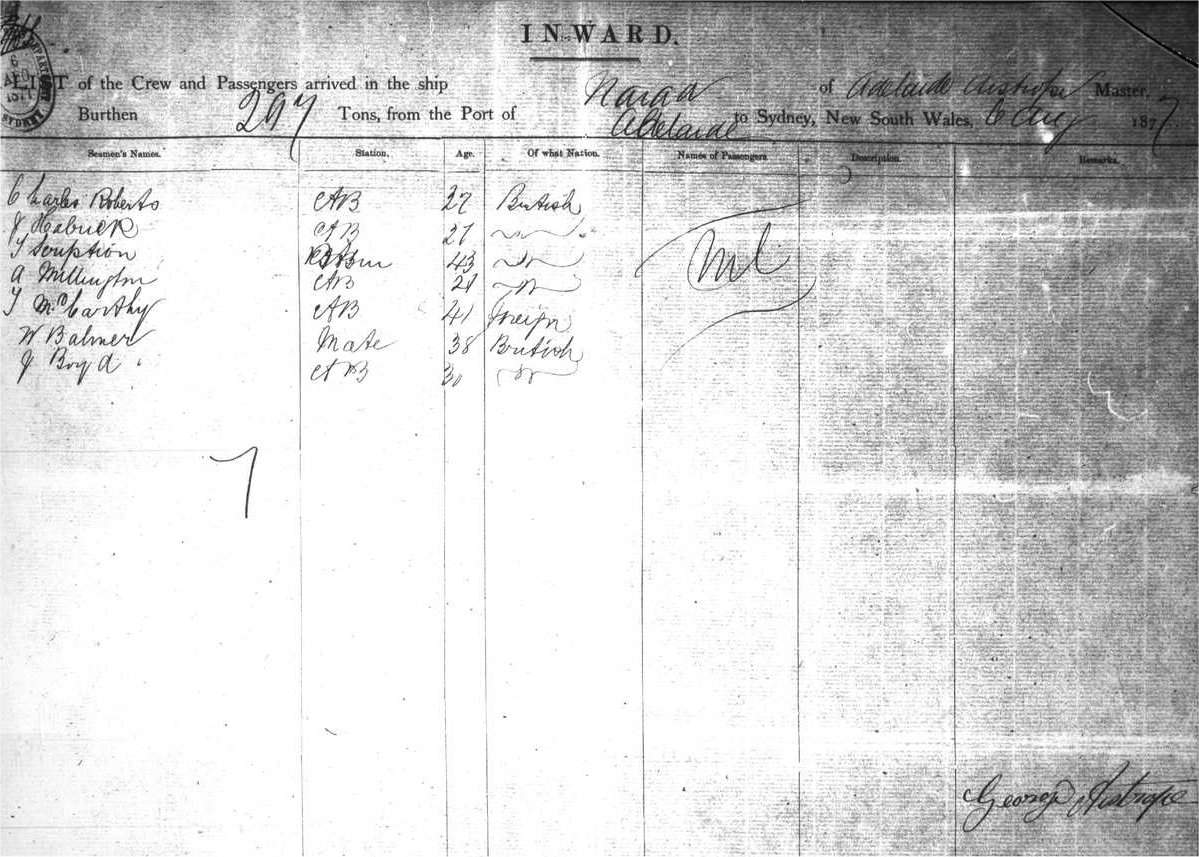 INWARD.
LIST of the Crew and Passengers arrived in the ship Naiad of Adelaide Master,
Burthen 297 Tons, from the Port of Adelaide to Sydney, New South Wales, 6 Aug 1877
Seamen's Names. Station. Age. Of what Nation. Names of Passengers Description. Remarks.
Charles Roberts AB 27 British
J AB 27 do
43 do
A Millington AB 21 do
T McCarthy AB 41 foreign
W Balmer Mate 38 British
J Boyd AB 30 do
Nil
7
George